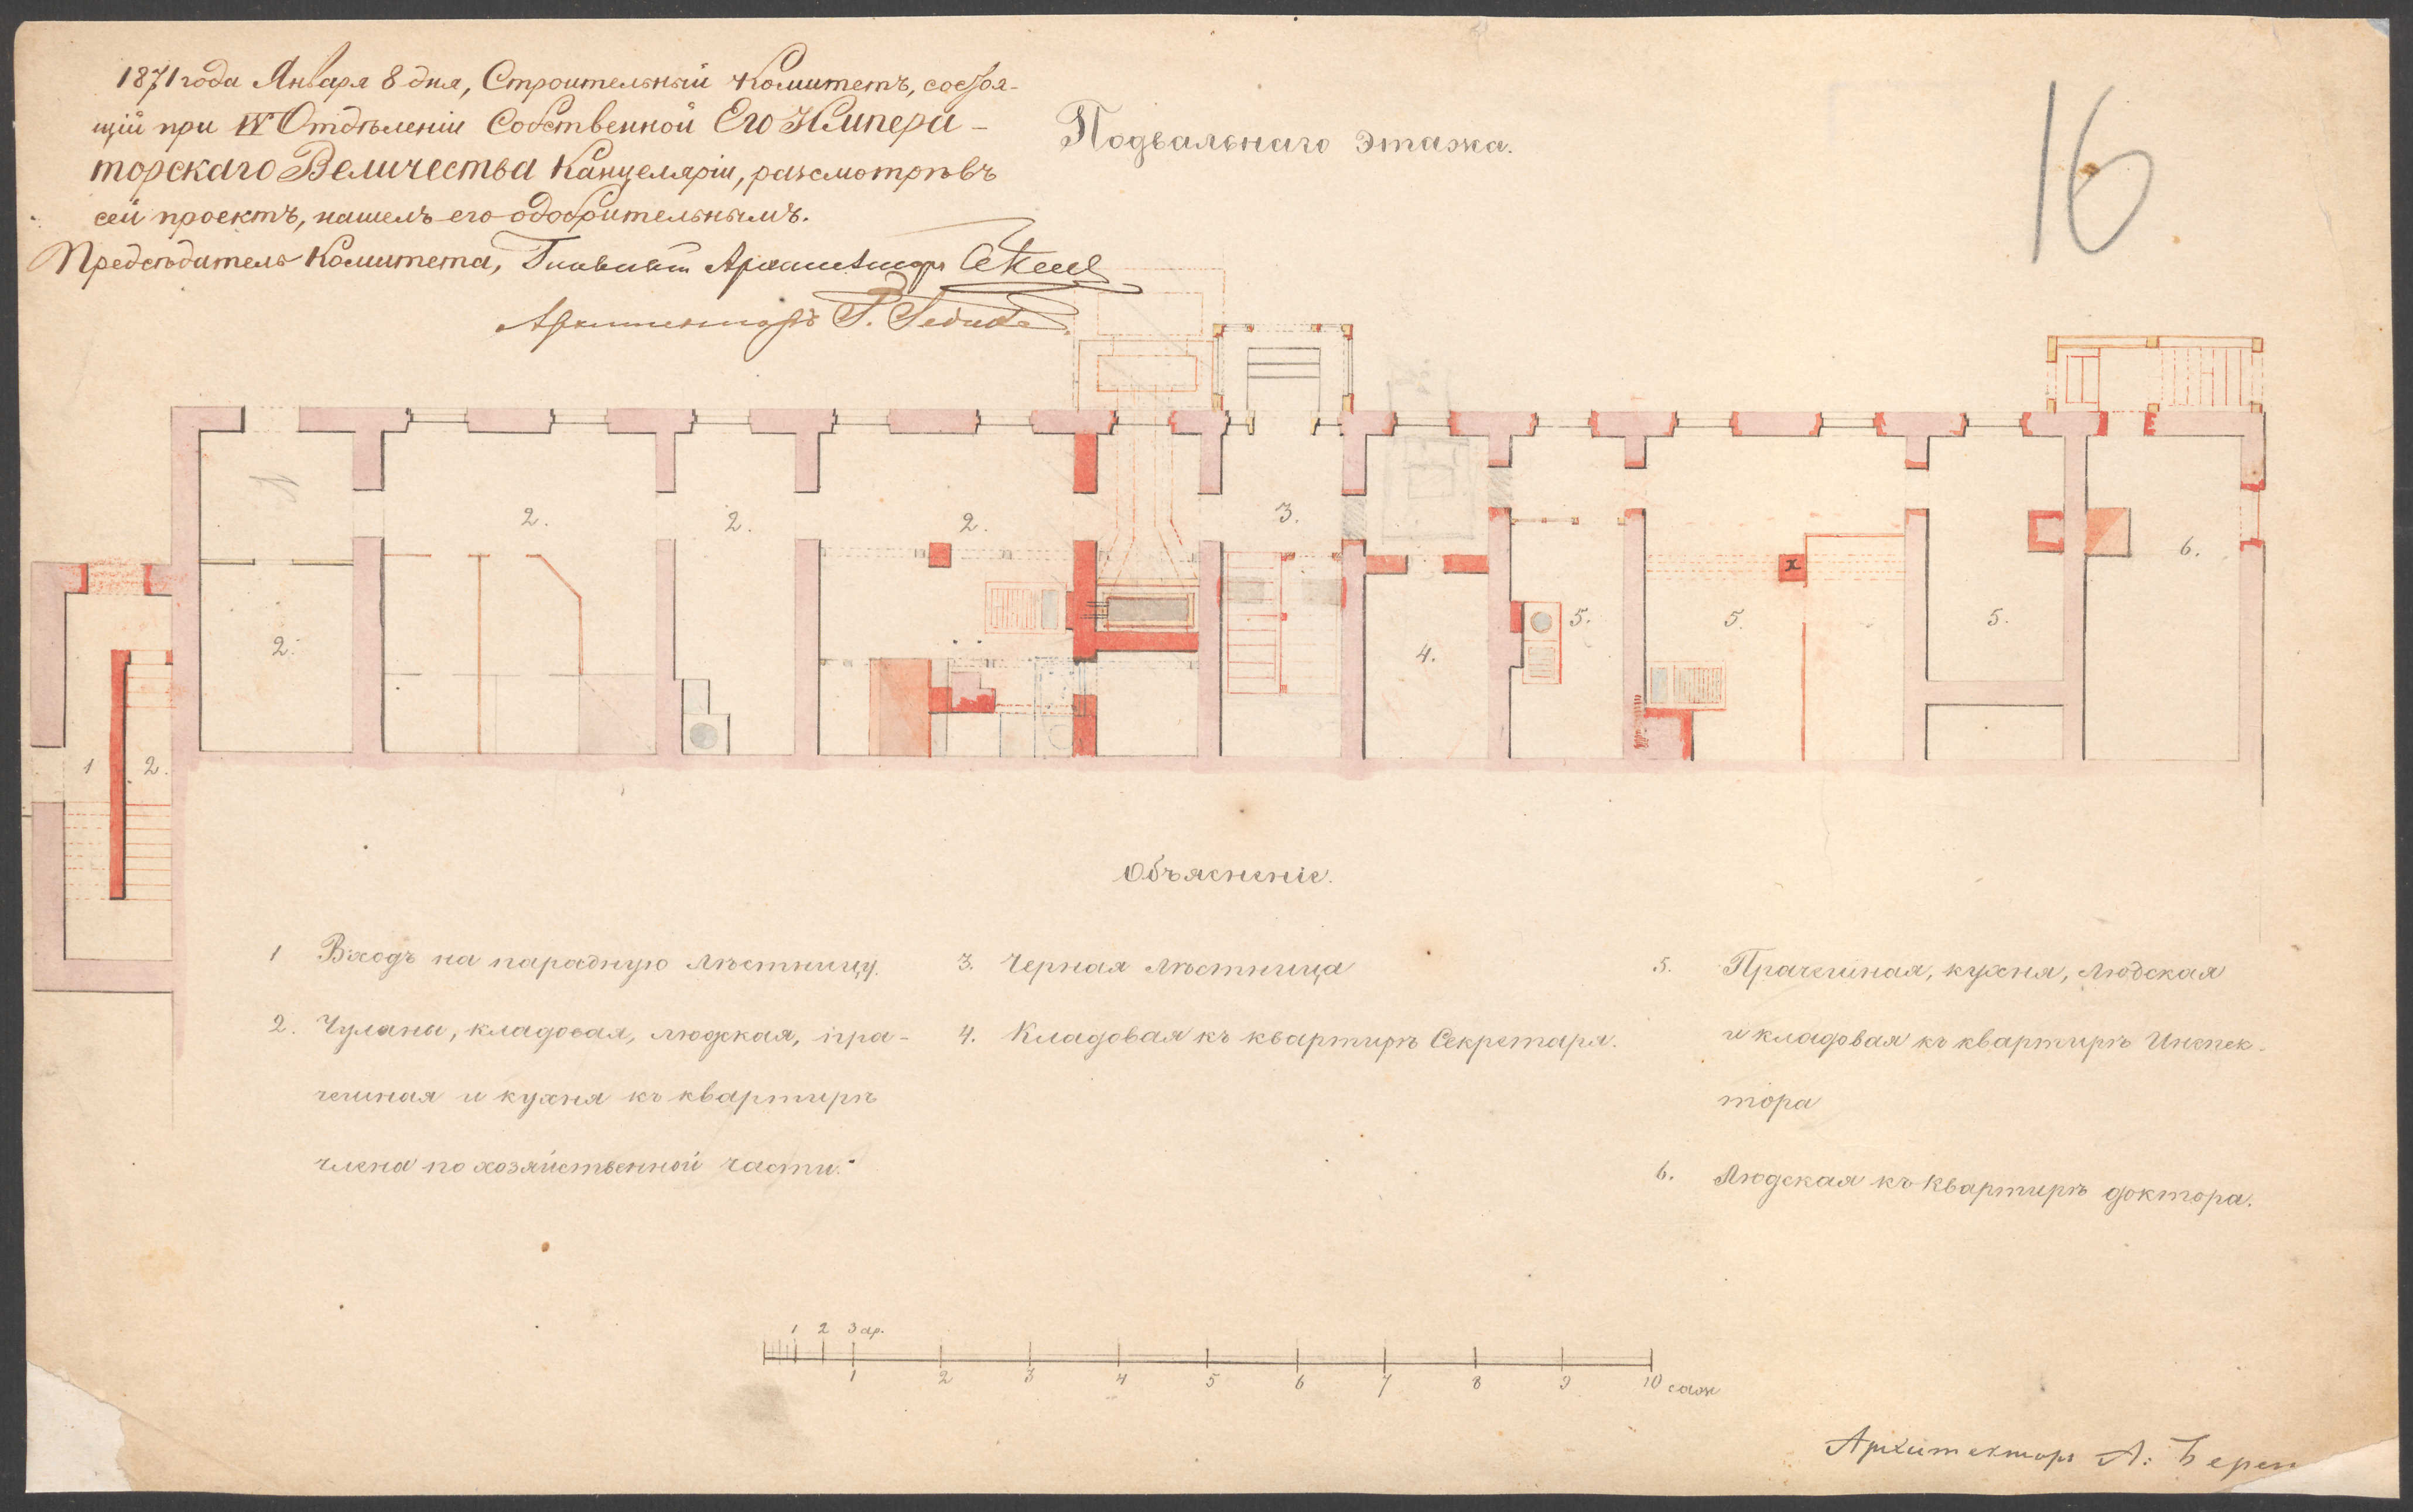 1871 года Января 8 дня, Строительный Комитетъ, состоя-
щій при IV Отдѣленіи Собственной Его Импера-
торскаго Величества Канцеляріи, разсмотрѣвъ
сей проектъ, нашелъ его одобрительнымъ.
Предсѣдатель Комитета, Главный Архитекторъ
Архитекторъ
Подвальнаго этажа.
16
2.
2.
2.
3.
6.
2.
4.
5.
5.
5.
x
1
2.
Объясненіе.
1 Входъ на парадную лѣстницу.
2. Чуланы, кладовая, людская, пра-
чешная и кухня къ квартирѣ
члена по хозяйственной части.
3. Черная лѣстница
4. Кладовая къ квартирѣ Секретаря.
5. Прачешная, кухня, людская
и кладовая къ квартирѣ Инспек-
тора
6. Людская къ квартирѣ доктора.
1 2 3 ар.
1 2 3 4 5 6 7 8 9 10 саж
Архитекторъ А. Берен